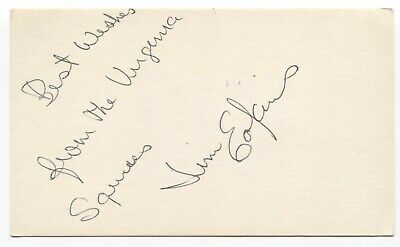 Best Wishes
from the Virginia
Squires
Jim Eakins